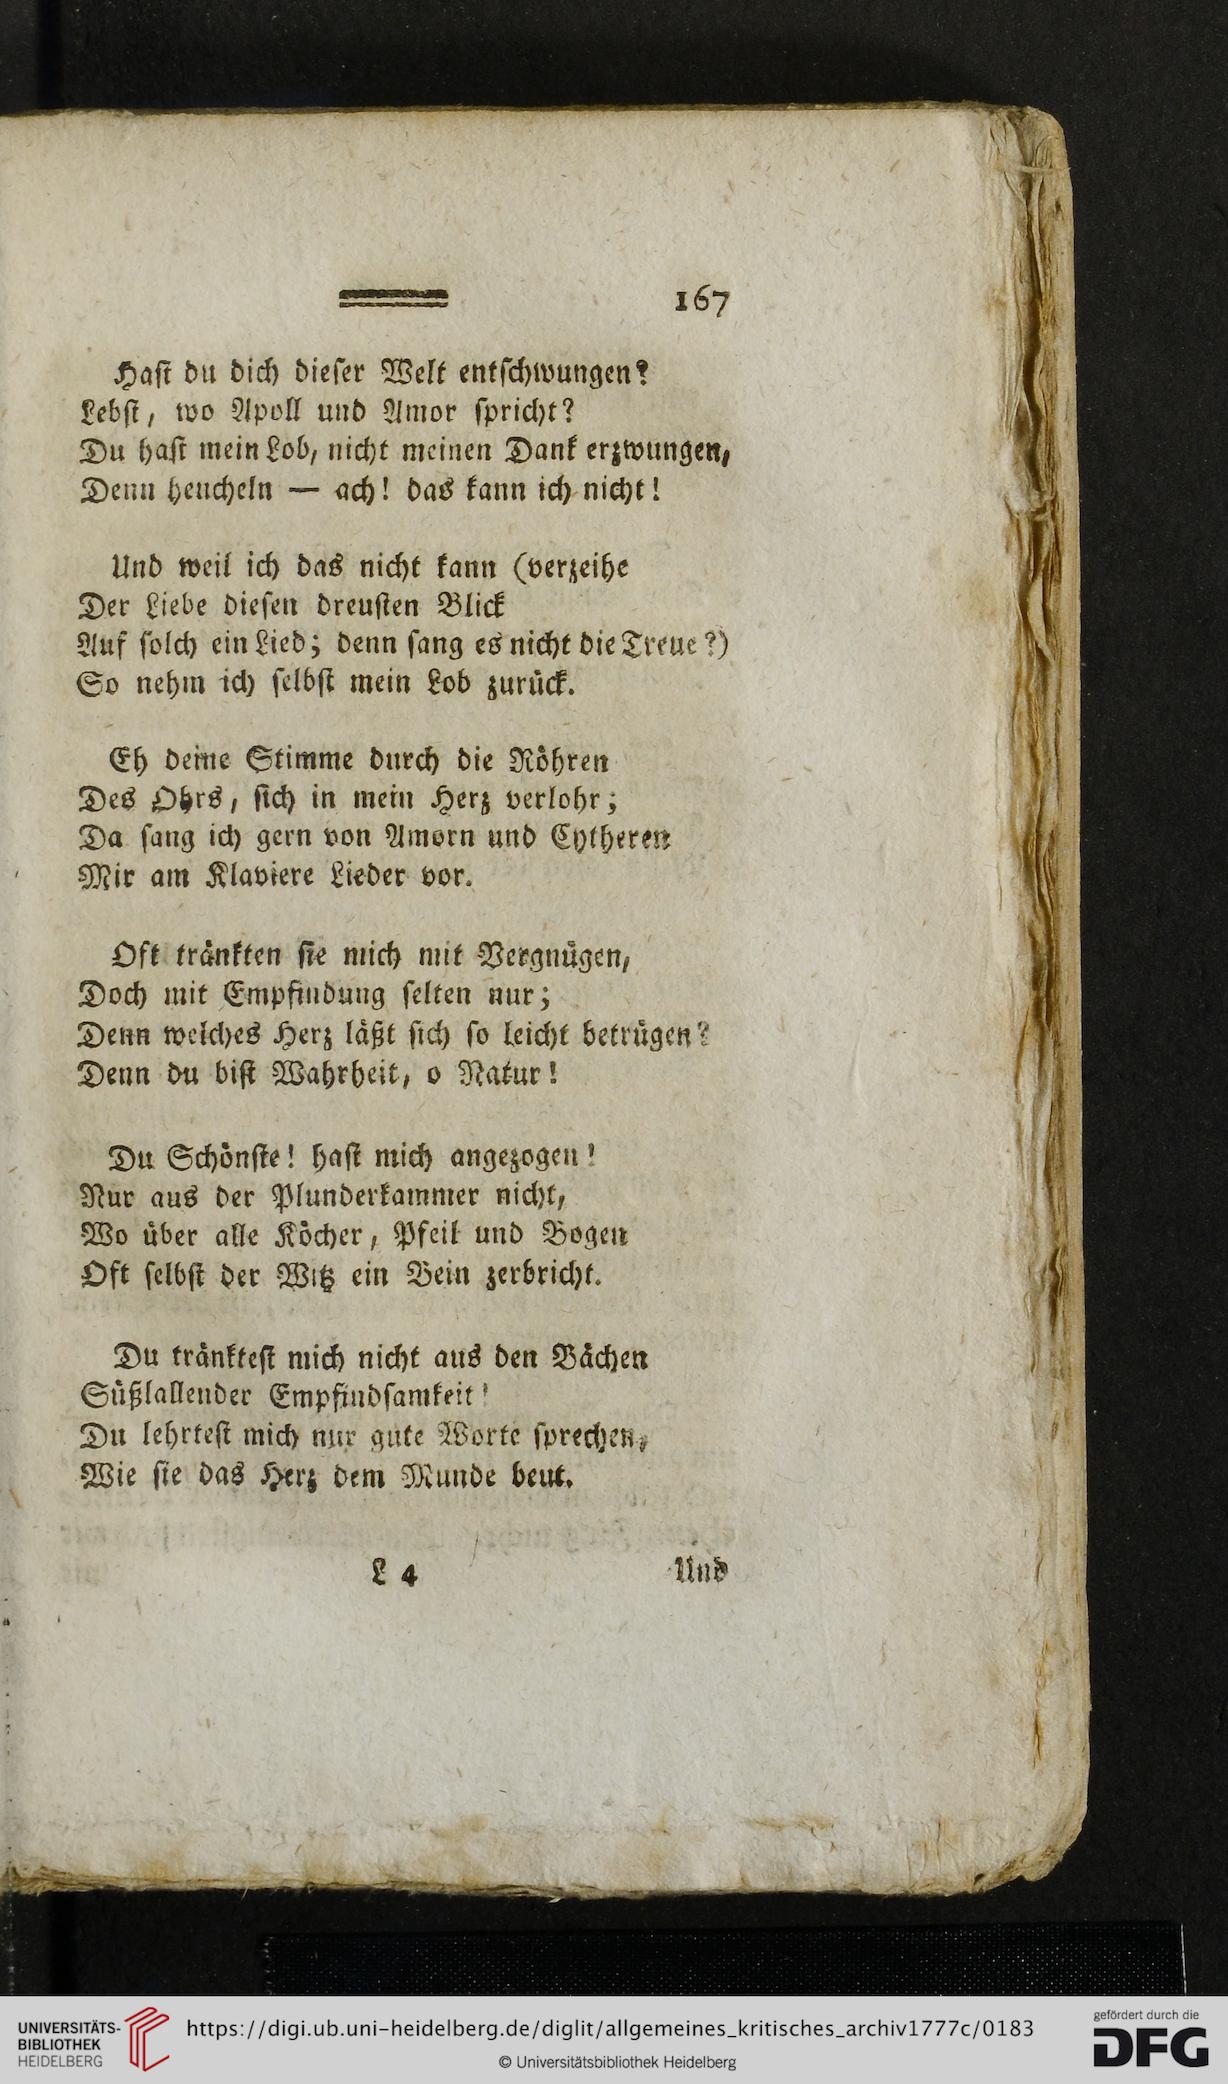 167
Hast du dich dieser Welt entschwungen?
Lebst, wo Apoll und Amor spricht?
Du hast mein Lob, nicht meinen Dank erzwungen,
Denn heucheln — ach! das kann ich nicht!
Und weil ich das nicht kann (verzeihe
Der Liebe diesen dreusten Blick
Auf solch ein Lied; denn sang es nicht die Treue?)
So nehm ich selbst mein Lob zurück.
Eh deine Stimme durch die Röhren
Des Ohrs, sich in mein Herz verlohr;
Da sang ich gern von Amorn und Cytheren
Mir am Klaviere Lieder vor.
Oft tränkten sie mich mit Vergnügen,
Doch mit Empfindung selten nur;
Denn welches Herz läßt sich so leicht betrügen?
Denn du bist Wahrheit, o Natur!
Du Schönste! hast mich angezogen!
Nur aus der Plunderkammer nicht,
Wo über alle Köcher, Pfeil und Bogen
Oft selbst der Witz ein Bein zerbricht.
Du tränktest mich nicht aus den Bächen
Süßlallender Empfindsamkeit!
Du lehrtest mich nur gute Worte sprechen,
Wie sie das Herz dem Munde beut.
L 4 Und
UNIVERSITÄTS-
BIBLIOTHEK
HEIDELBERG
https://digi.ub.uni-heidelberg.de/diglit/allgemeines_kritisches_archiv1777c/0183
© Universitätsbibliothek Heidelberg
gefördert durch die
DFG